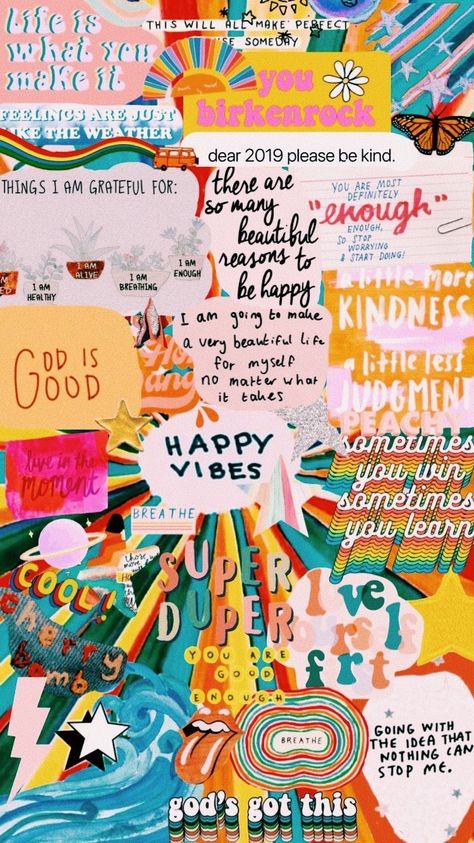 THIS WILL ALL MAKE PERFECT
SOMEDAY
life is
what you
make it
you
birkenrock
FEELINGS ARE JUST
LIKE THE WEATHER
dear 2019 please be kind.
THINGS I AM GRATEFUL FOR:
I AM
ALIVE
I AM
HEALTHY
I AM
BREATHING
I AM
ENOUGH
there are
so many
beautiful
reasons to
be happy
YOU ARE MOST
DEFINITELY
"enough"
ENOUGH,
SO STOP
WORRYING
& START DOING!
a little more
KINDNESS
a little less
JUDGMENT
I am going to make
a very beautiful life
for myself
no matter what
it takes
GOD IS
GOOD
PEACHY
HAPPY
VIBES
live in the
moment
sometimes
you win
sometimes
you learn
BREATHE
SUPER
DUPER
YOU ARE
GOOD
ENOUGH
COOL!
cherry
bomb
love
frt
BREATHE
GOING WITH
THE IDEA THAT
NOTHING CAN
STOP ME.
god's got this